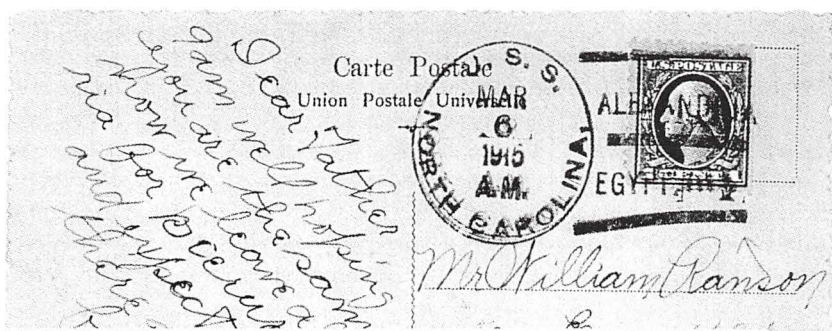 Carte Postale
Union Postale Universelle
U. S. S.
NORTH CAROLINA.
MAR
6
1915
A.M.
ALEXANDRIA
EGYPT.
U.S. POSTAGE
Dear Father
I am well hoping
you are the sam
how we leave
ria for
and expect
there
Mr William Ranson